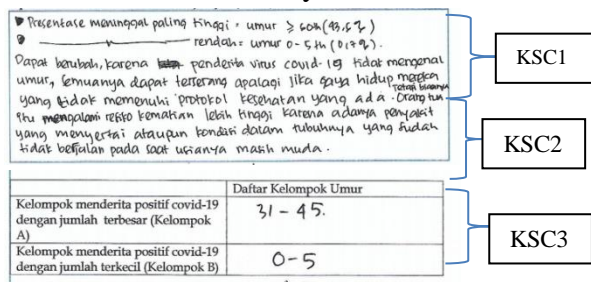 Presentase meninggal paling tinggi = umur ≥ 60th (43,6%)
rendah = umur 0-5th (0,17%).
Dapat berubah, karena penderita virus covid-19 tidak mengenal
umur, semuanya dapat terserang apalagi jika gaya hidup mereka
yang tidak memenuhi protokol kesehatan yang ada. Tetapi biasanya Orang tua
itu mengalami resiko kematian lebih tinggi karena adanya penyakit
yang menyertai ataupun kondisi dalam tubuhnya yang sudah
tidak berjalan pada saat usianya masih muda.
KSC1
KSC2
Daftar Kelompok Umur
Kelompok menderita positif covid-19 dengan jumlah terbesar (Kelompok A)
31 - 45.
Kelompok menderita positif covid-19 dengan jumlah terkecil (Kelompok B)
0-5
KSC3